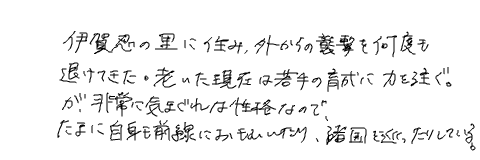 伊賀忍の里に住み、外からの襲撃を何度も
退けてきた。老いた現在は若手の育成に力を注ぐ。
が、非常に気まぐれな性格なので、
たまに自身も前線におもむいたり、諸国を巡ったりしている。